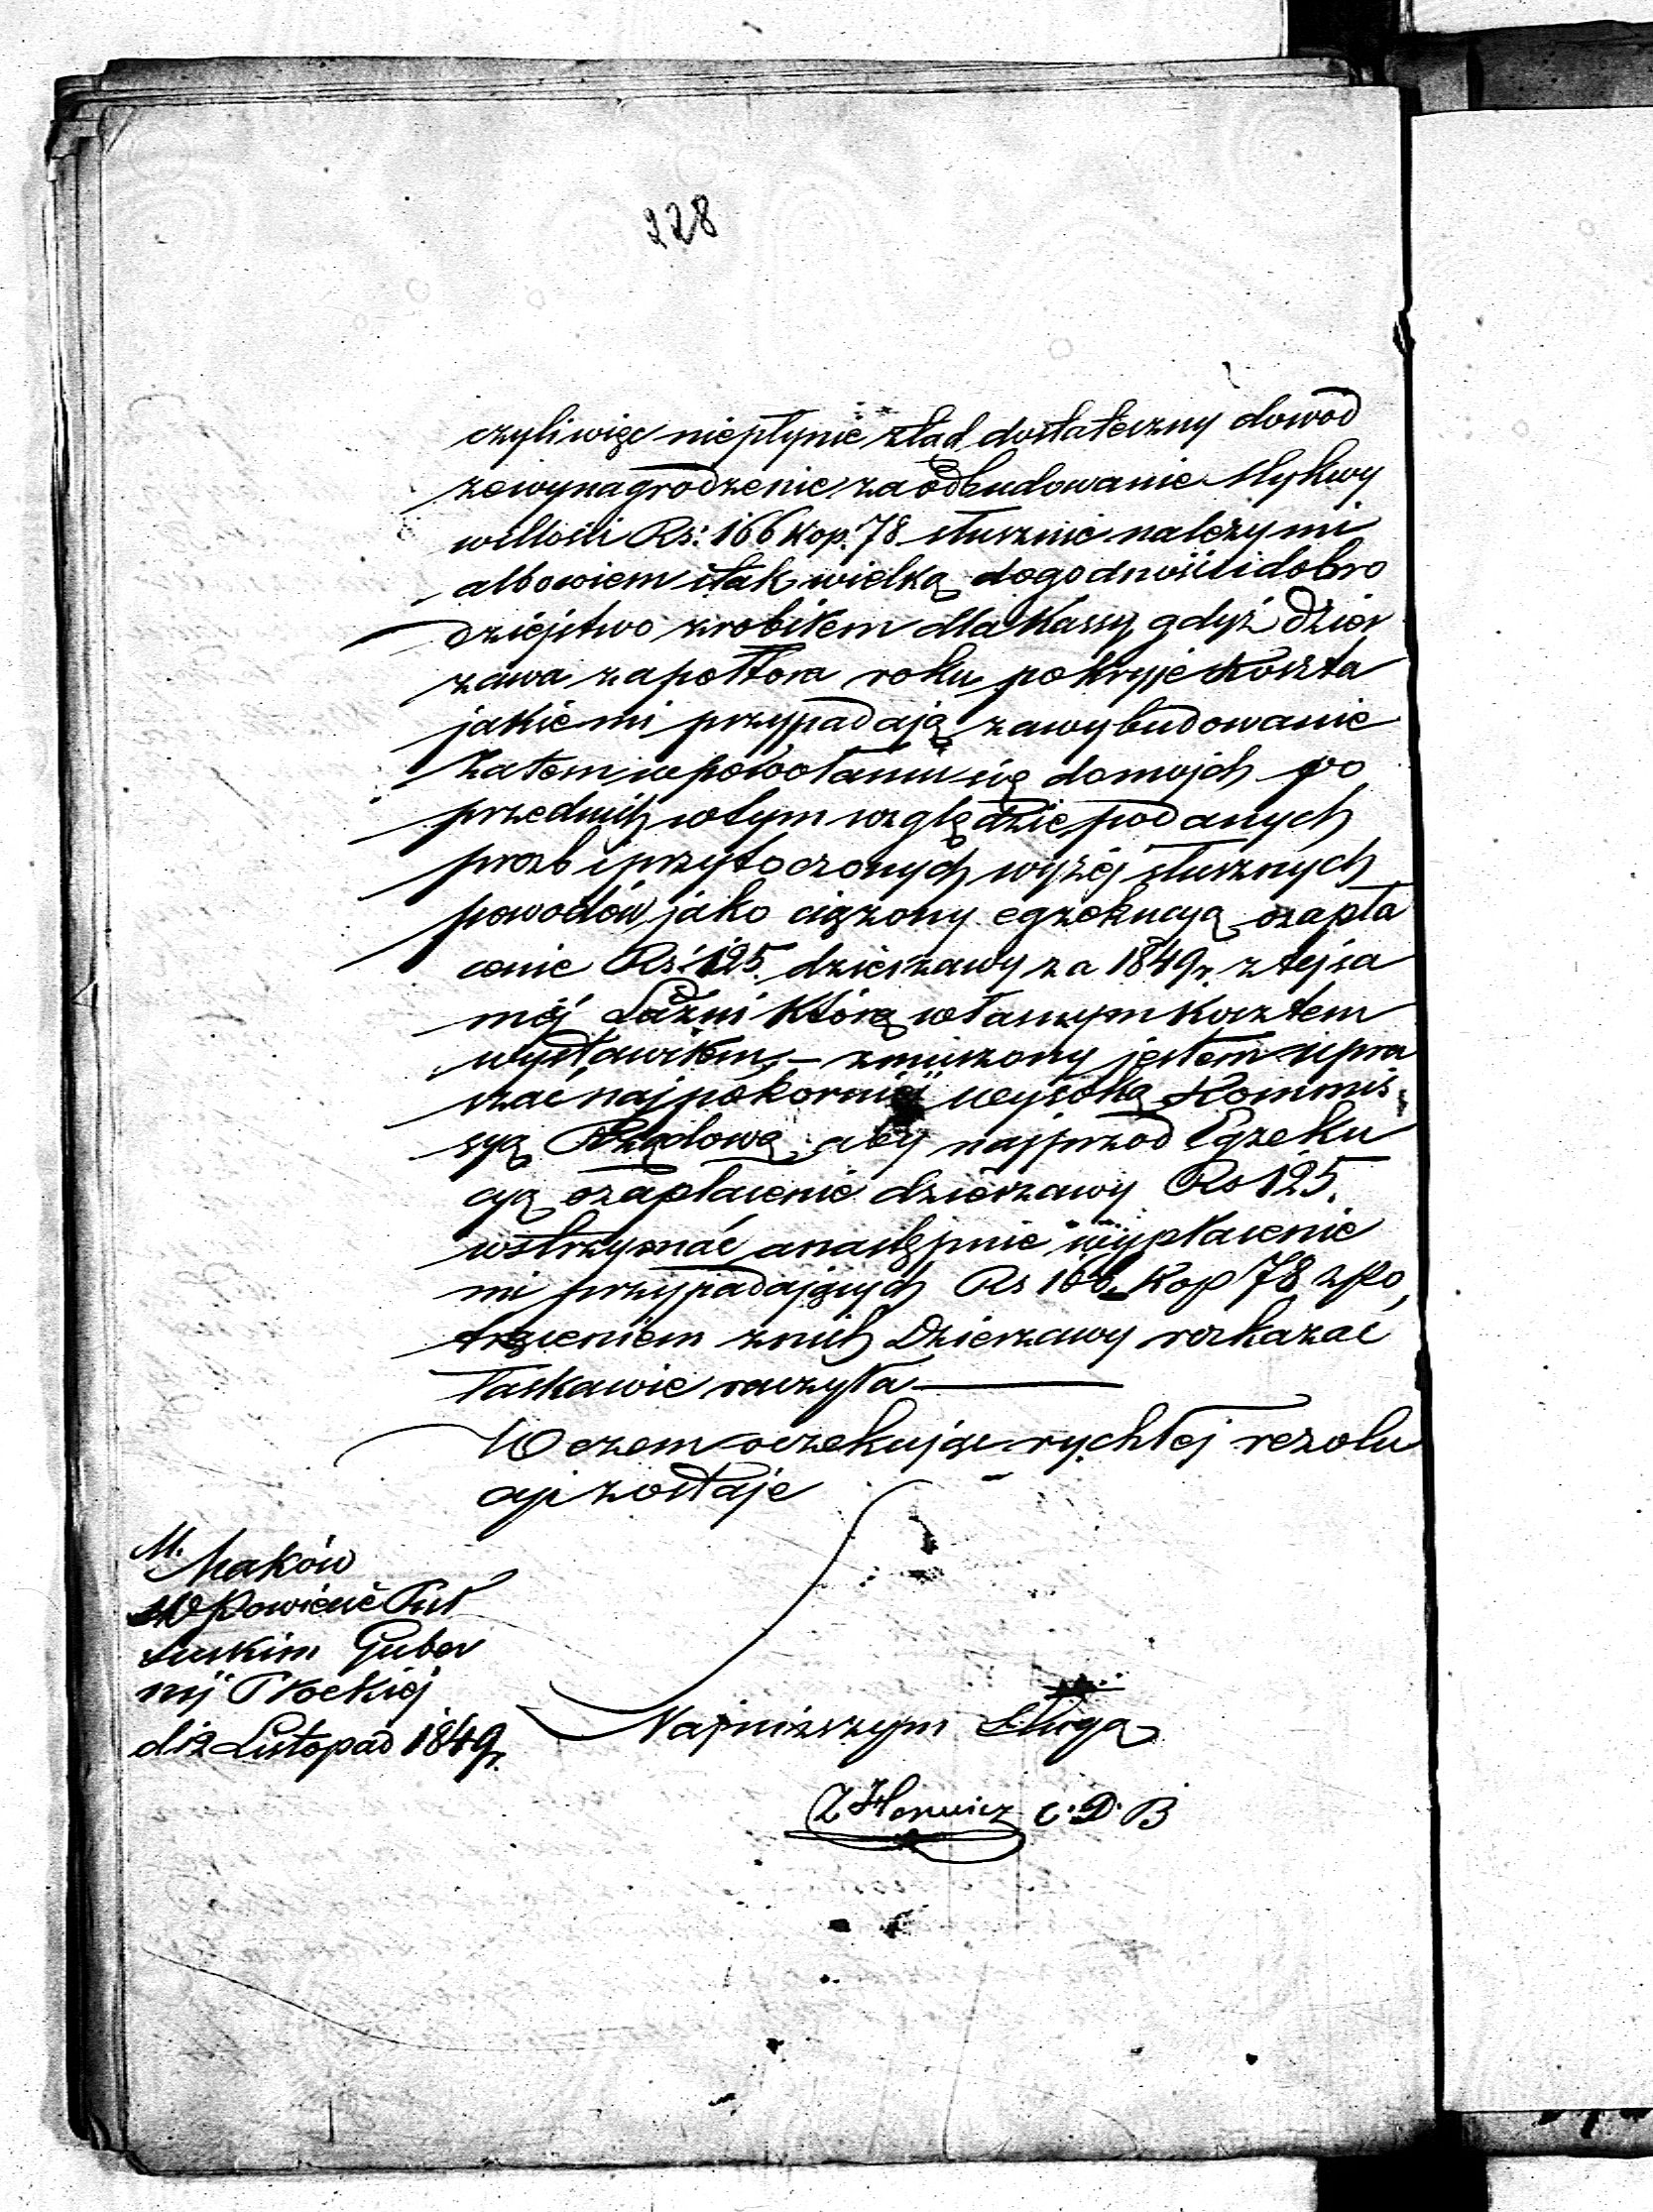 228
czyli więc nie płynie ztąd dostateczny dowod
że wynagrodzenie za odbudowanie Mykwy
w illości Rs: 166 kop: 78 słusznie należy mi
albowiem i tak wielką dogodność i dobro
dziejstwo zrobiłem dla Kassy gdyż Dzier
zawa za połtora roku pokryje koszta
jakie mi przypadają za wybudowanie
Zatem w powołaniu się do mojch po
przednich w tym względzie podanych
prozb i przytoczonych wyżej słusznych
powodów jako ciążony egzekucyą o zapła
cenie Rs: 125. dzierzawy za 1849 r. z tej sa
mej Łaźni którą własnym kosztem
wystawiłem, – zmuszony jestem upra
szać najpokorniej wysoką Kommis
syą Rządową aby najprzod Egzeku
cyą o zapłacenie dzierzawy Rs 125.
wstrzymać a następnie wypłacenie
mi przypadających Rs 166 Kop 78 z po
trąceniem z nich Dzierzawy rozkazać
łaskawie raczyła
W czem oczekując rychłej rezolu
cji zostaje
M. Maków
W Powiecie Puł
tuskim Guber
nij Płockiej
d 12 Listopad 1849 r.
Najnizszym Sługą
Z Horwicz C. D. B